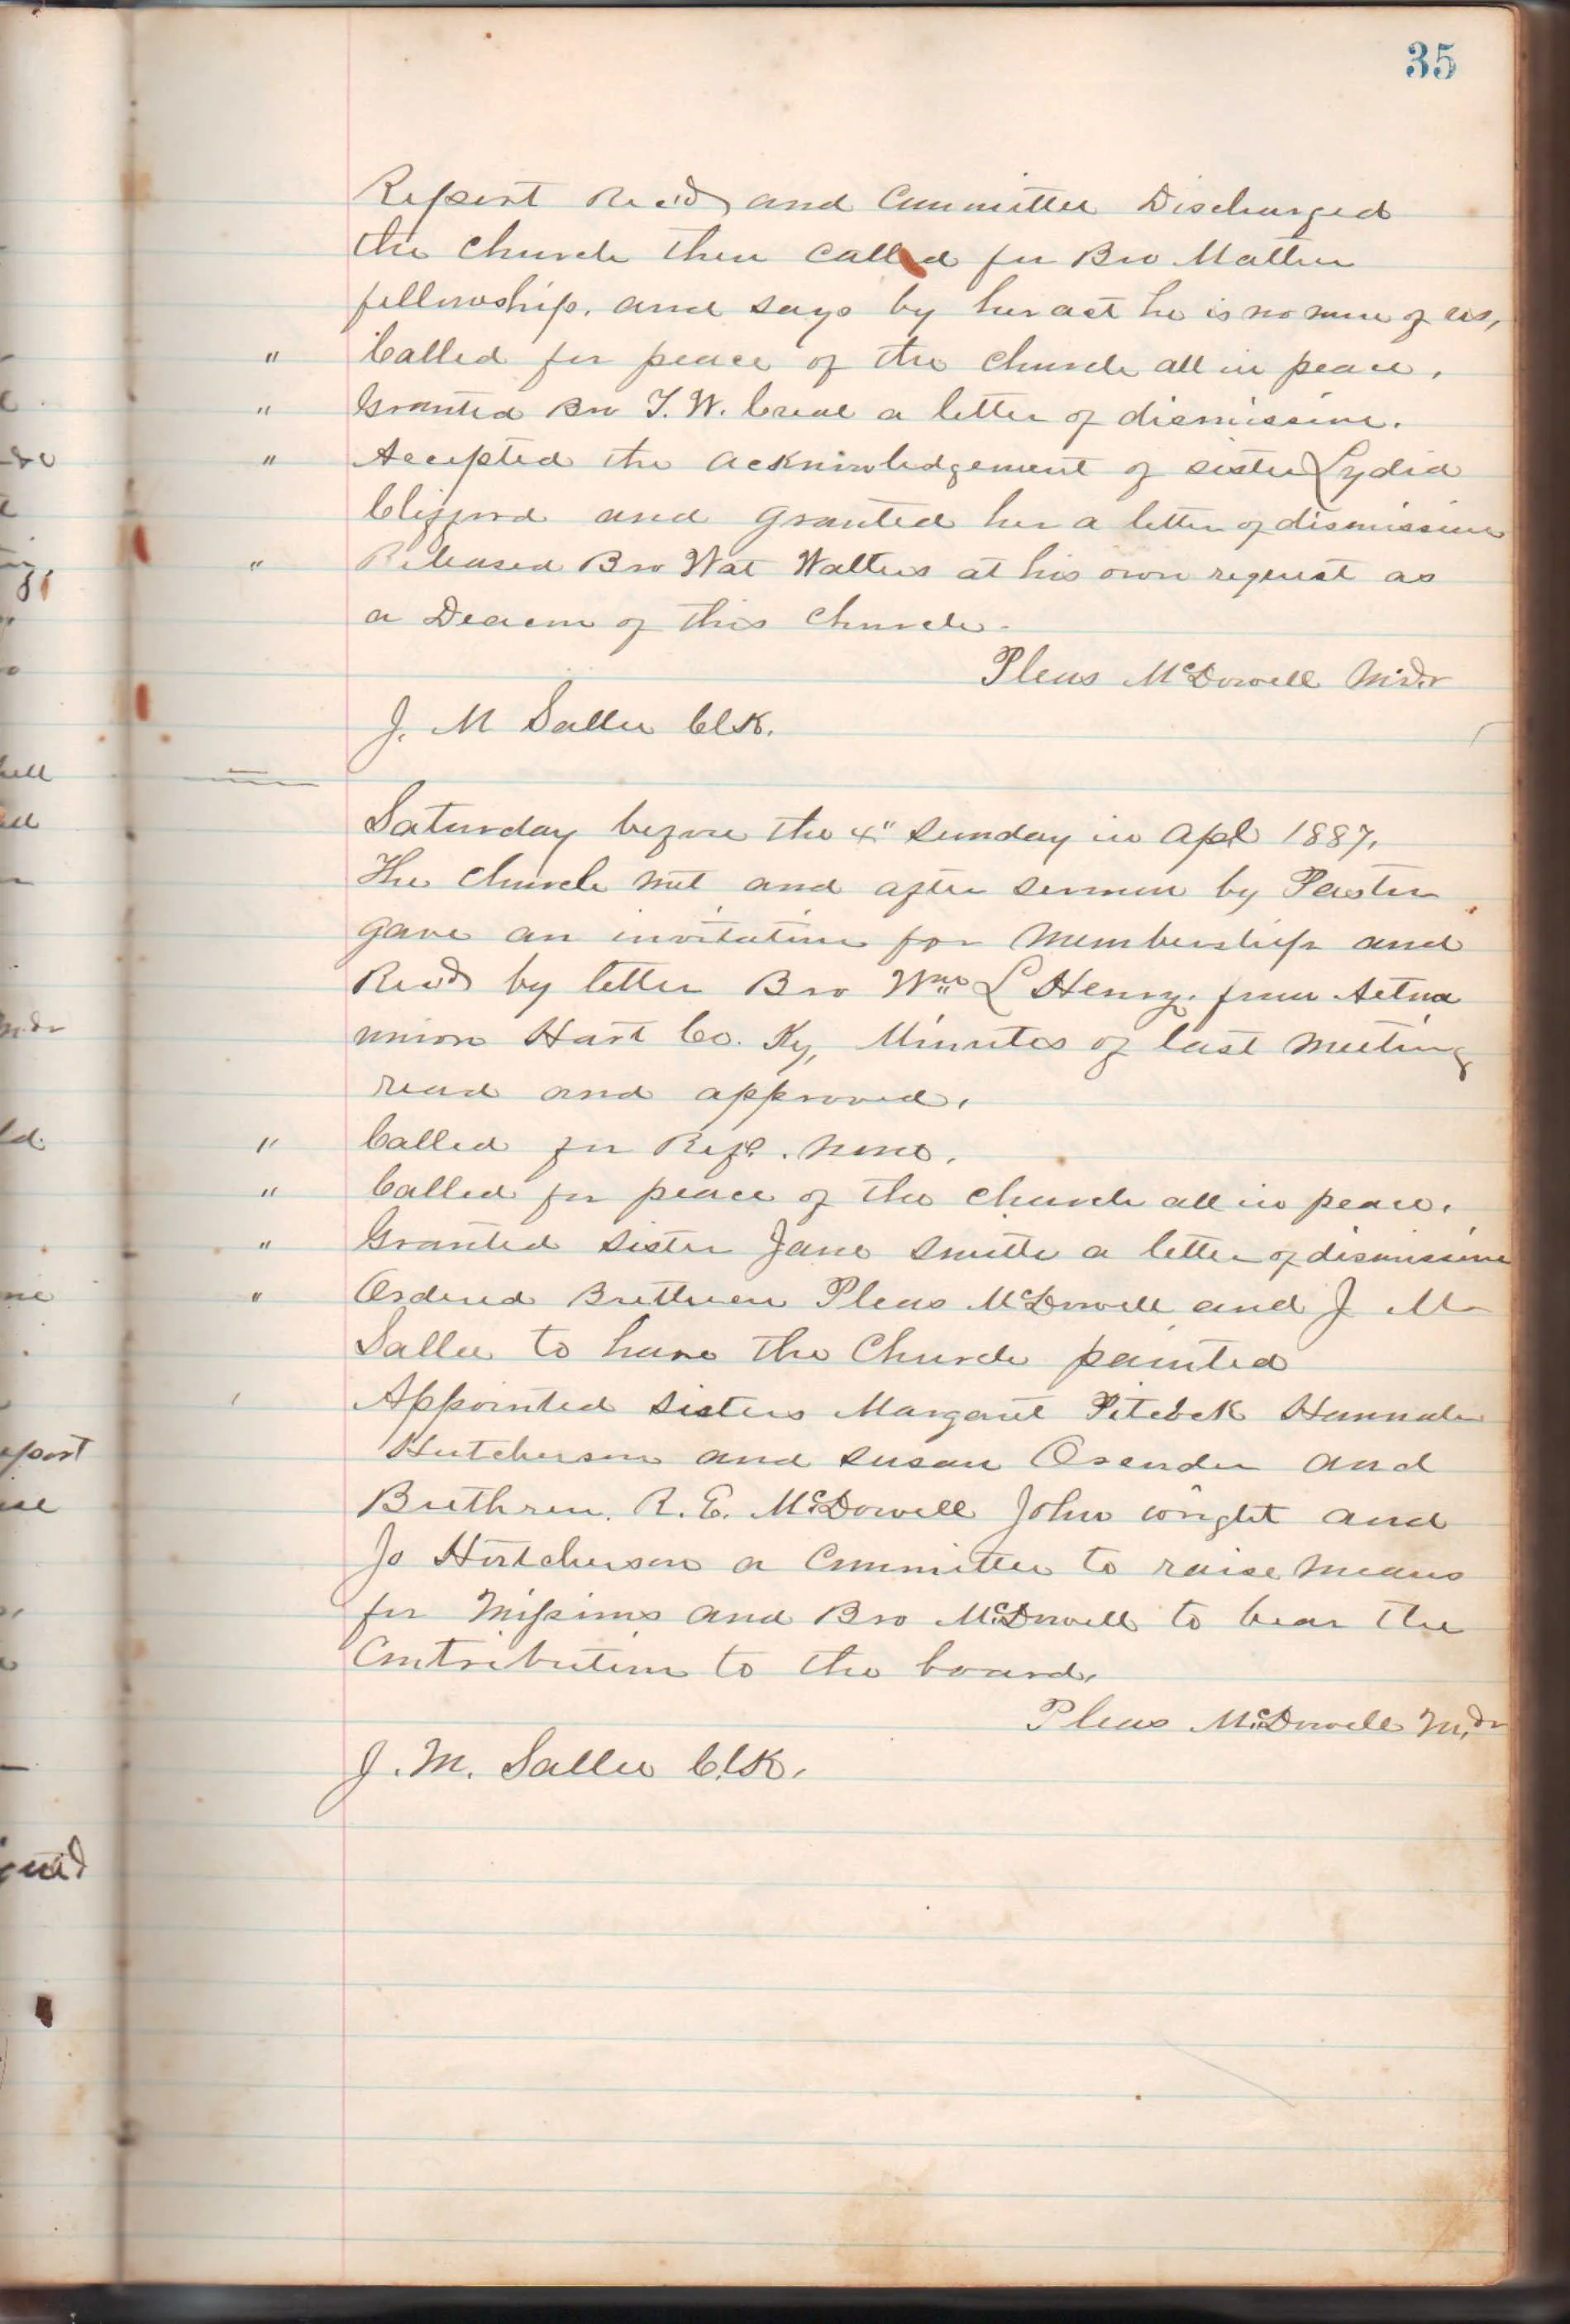 35
Report Recd and Committee Discharged
the church then called for Bro
fellowship, and says by her act he is no more of us,
" Called for peace of the church all in peace.
" Granted Bro T. W. Creal a letter of dismission.
" Accepted the acknowledgement of sister Lydia
Clifford and granted her a letter of dismission
" Released Bro Wat Walters at his own request as
a Deacon of this church.
Pleas McDowell Mdr
J. M Sallee Clk.
Saturday before the 4" Sunday in Apl 1887.
The church met and after sermon by Pastor
gave an invitation for membership and
Recd by letter Bro Wm L Henry. from Aetna
union Hart Co. Ky, Minutes of last meeting
read and approved.
" Called for Refc. none.
" Called for peace of the church all in peace.
" Granted sister Jane Smith a letter of dismission
" Ordered Brethren Pleas McDowell and J M
Sallee to have the Church painted
Appointed sisters Margaret Hannah
Hutcherson and Susan and
Brethren. R. E. McDowell John Wright and
Jo Hutcherson a Committee to raise means
for Missions and Bro McDowell to bear the
Contribution to the board.
Pleas McDowell Mdr
J. M. Sallee Clk.